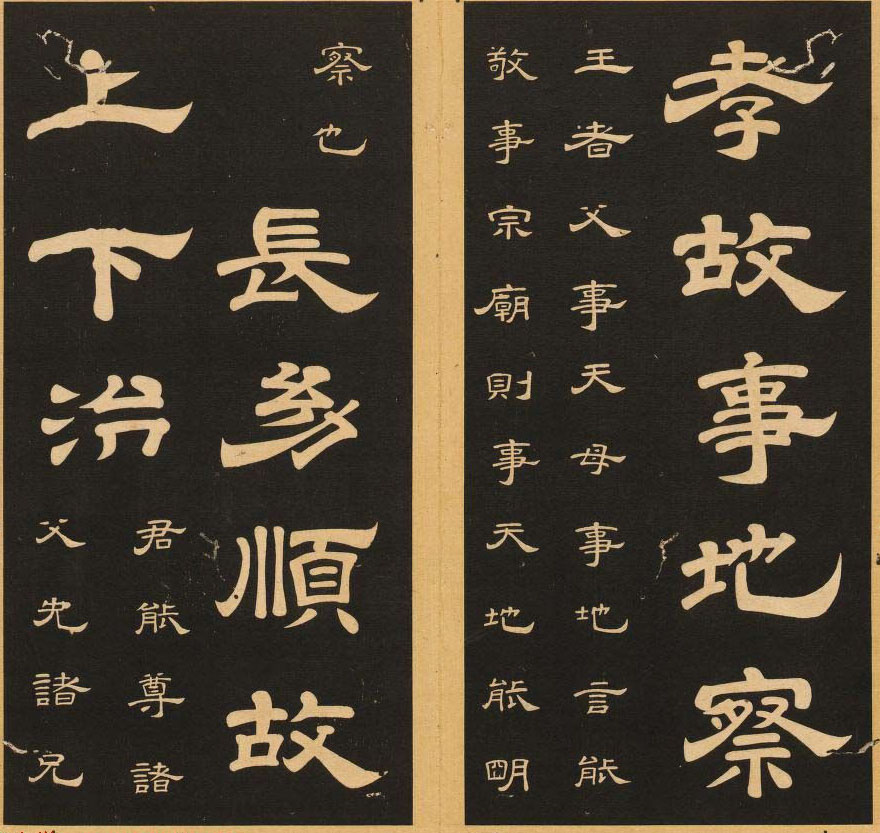 孝故事地察
王者父事天母事地言能
敬事宗廟則事天地能明
察也
長幼順故
上下治
君能尊諸
父先諸兄